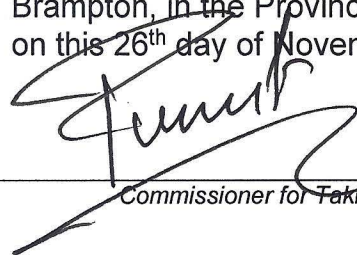 Brampton, in the Provinc
on this 26th day of Novem
Commissioner for Taki